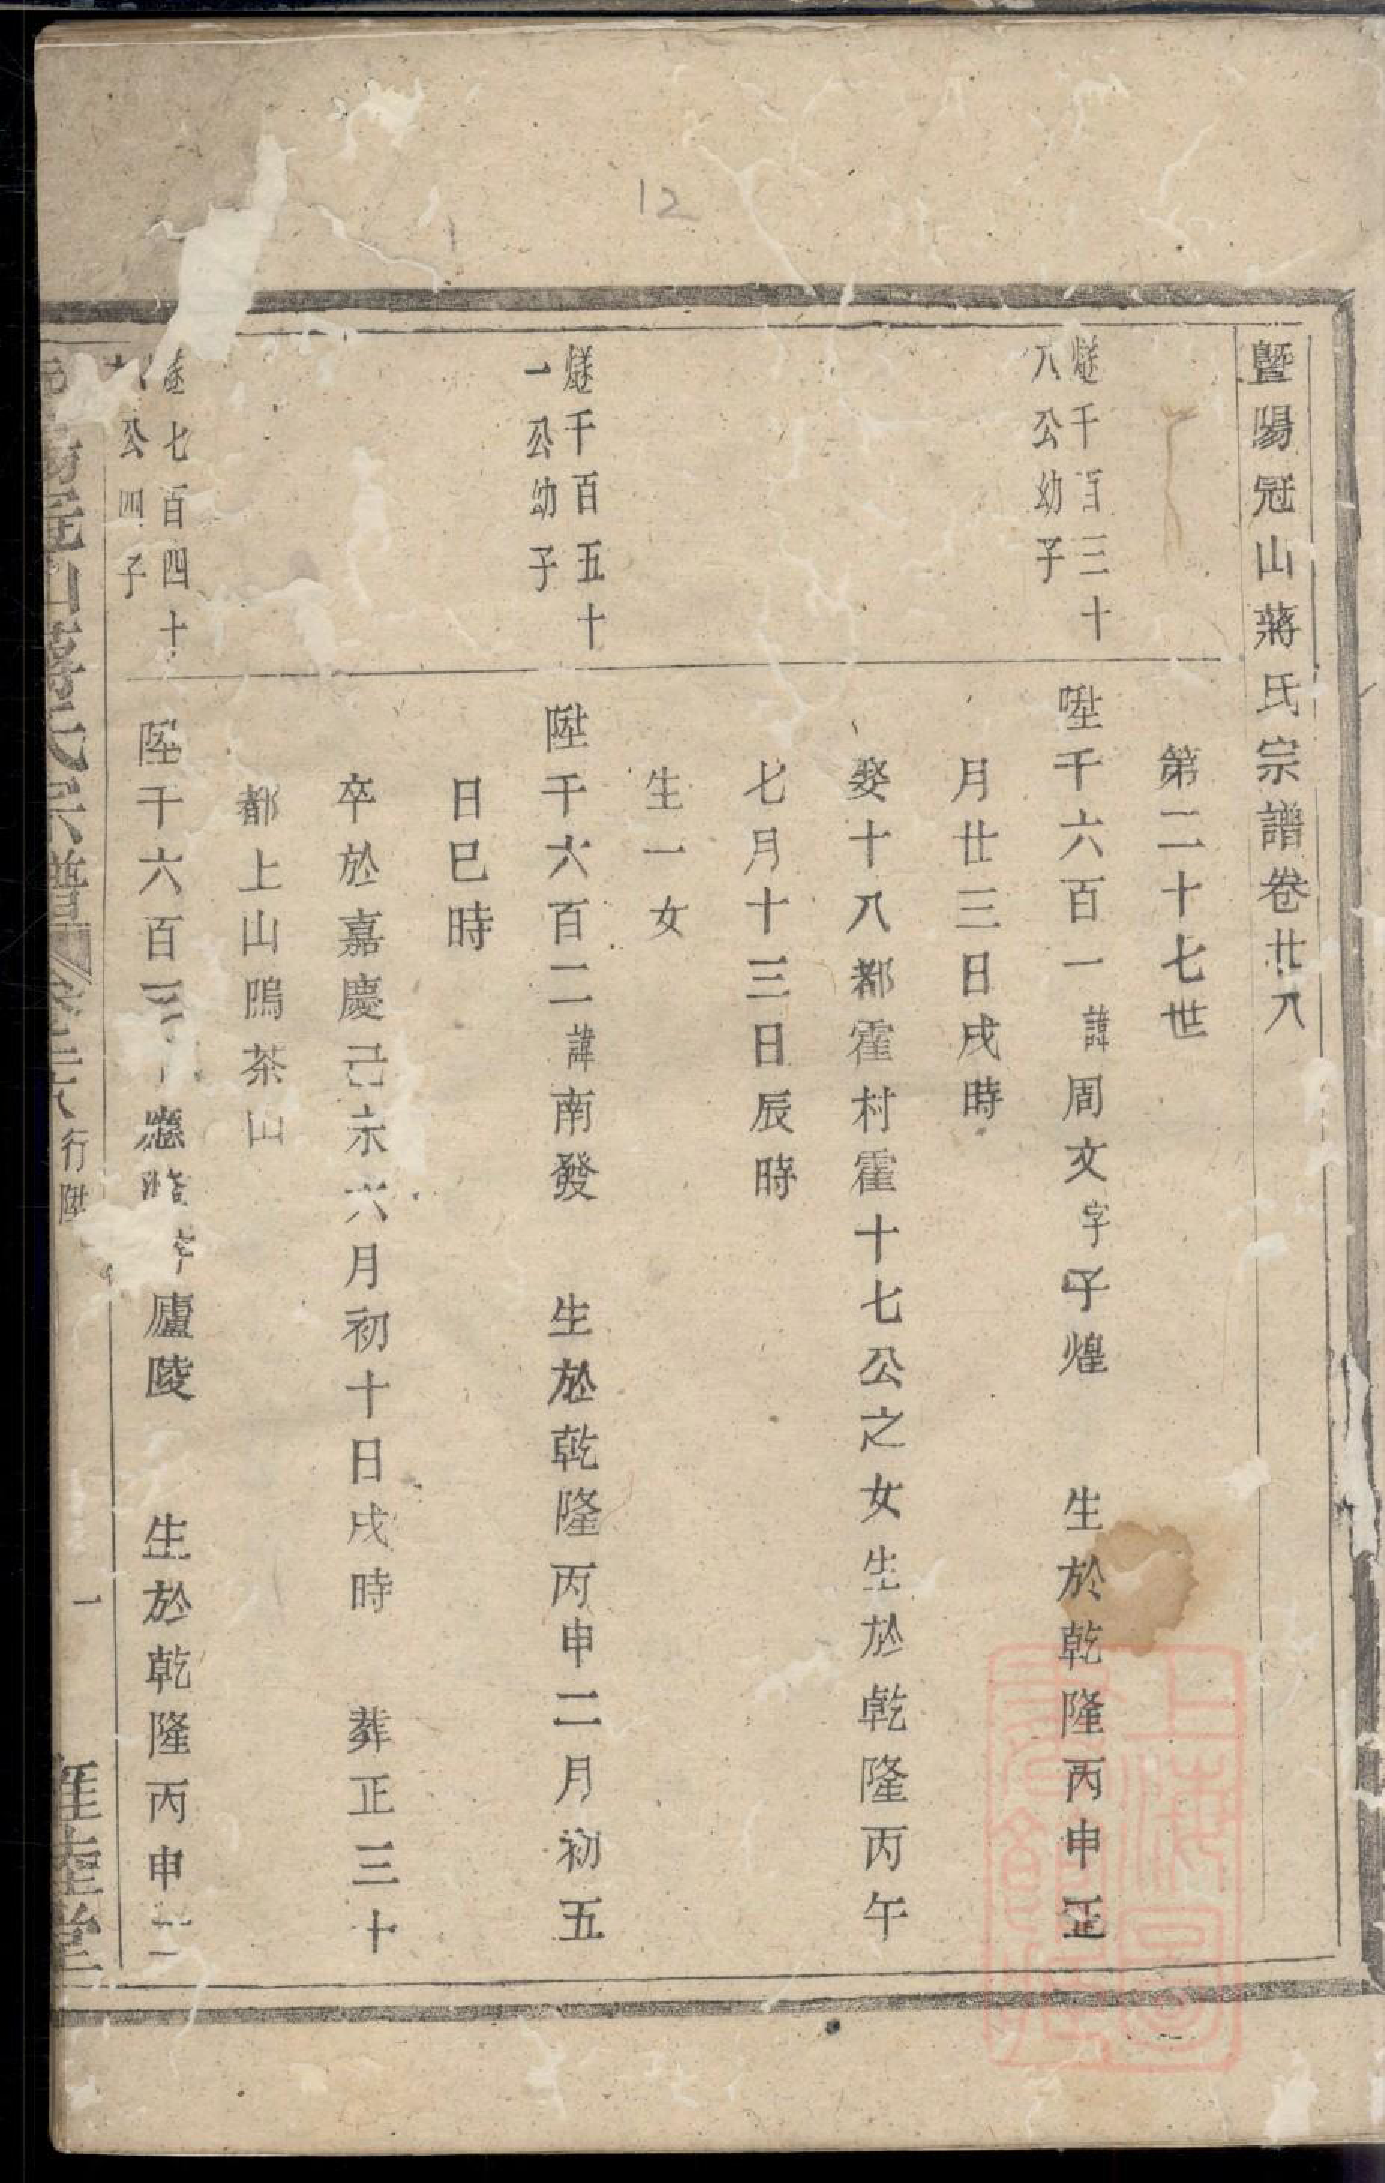 12
暨陽冠山蔣氏宗譜卷廿八
第二十七世
燧千百三十八公幼子
陞千六百一諱周文字子煌 生於乾隆丙申正
月廿三日戌時
娶十八都霍村霍十七公之女生於乾隆丙午
七月十三日辰時
生一女
燧千百五十一公幼子
陞千六百二諱南發 生於乾隆丙申二月初五
日巳時
卒於嘉慶己未六月初十日戌時 葬正三十
都上山隖茶山
燧七百四十公四子
陞千六百三 廬陵 生於乾隆丙申二
冠山蔣氏宗譜 卷廿八 行陞 一 睦堂
上海圖書館藏